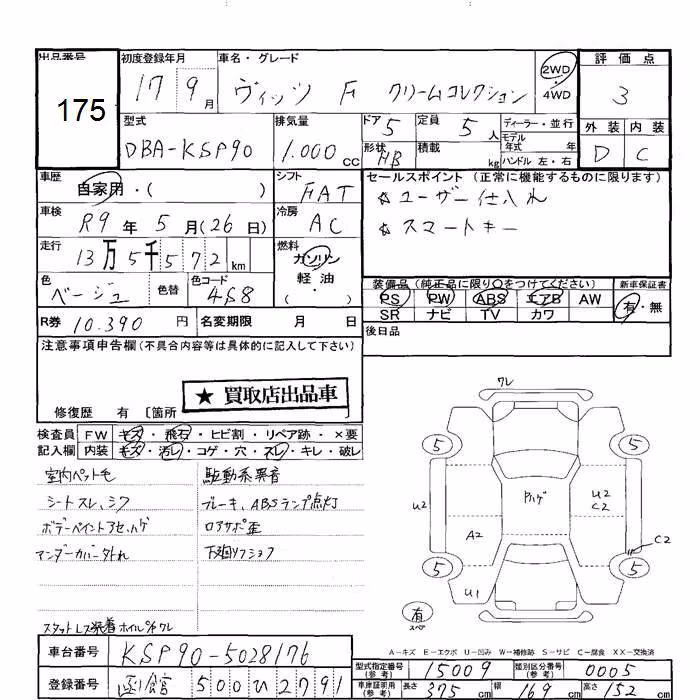 出品番号
175
初度登録年月
17 9月
車名・グレード
ヴィッツ F クリームコレクション
2WD
4WD
評価点
3
型式
DBA-KSP90
排気量
1.000cc
ドア
5
定員
5人
形状
HB
積載
kg
ディーラー・並行
モデル
年式 年
ハンドル 左・右
外装
内装
D
C
車歴
自家用・( )
シフト
FAT
車検
R9年5月(26日)
冷房
AC
走行
13万5千572km
燃料
ガソリン
軽油
( ・ )
色
ベージュ
色替
色コード
4S8
R券 10.390円
名変期限 月 日
セールスポイント (正常に機能するものに限ります)
☆ユーザー仕入れ
☆スマートキー
装備品(純正品に限り○をつけてください)
新車保証書
PS PW ABS エアB AW
SR ナビ TV カワ
有・無
後日品
注意事項申告欄(不具合内容等は具体的に記入して下さい)
★ 買取店出品車
修復歴 有 [箇所
検査員
記入欄
FW キズ・飛石・ヒビ割・リペア跡・×要
内装 キズ・汚レ・コゲ・穴・スレ・キレ・破レ
室内ペット毛
シートスレ、シワ
ボデーペイントアセ、ハゲ
アンダーカバー外れ
スタットレス装着
駆動系異音
ブレーキ、ABSランプ点灯
ロアサポ歪
ワレ
5
5
5
5
U2
A2
U1
Pハゲ
U2
C2
C2
有
スペア
A-キズ E-エクボ U-凹み W-補修跡 S-サビ C-腐食 XX-交換済
車台番号
KSP90-5028176
登録番号
函館 500 ひ 2791
型式指定番号
(参考)
15009
類別区分番号
(参考)
0005
車庫証明用
(参考)
長さ
375cm
幅
169
高さ
152cm